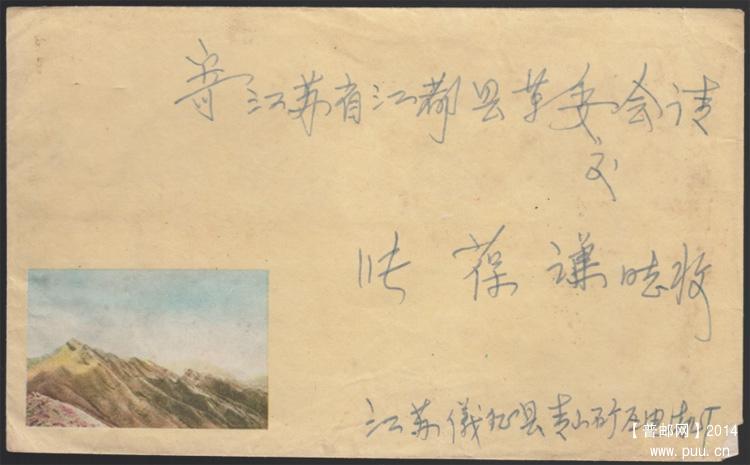 寄江苏省江都县革委会请
交
张葆谦 同志收
江苏仪征县青山矿
【普邮网】2014
www.puu.cn